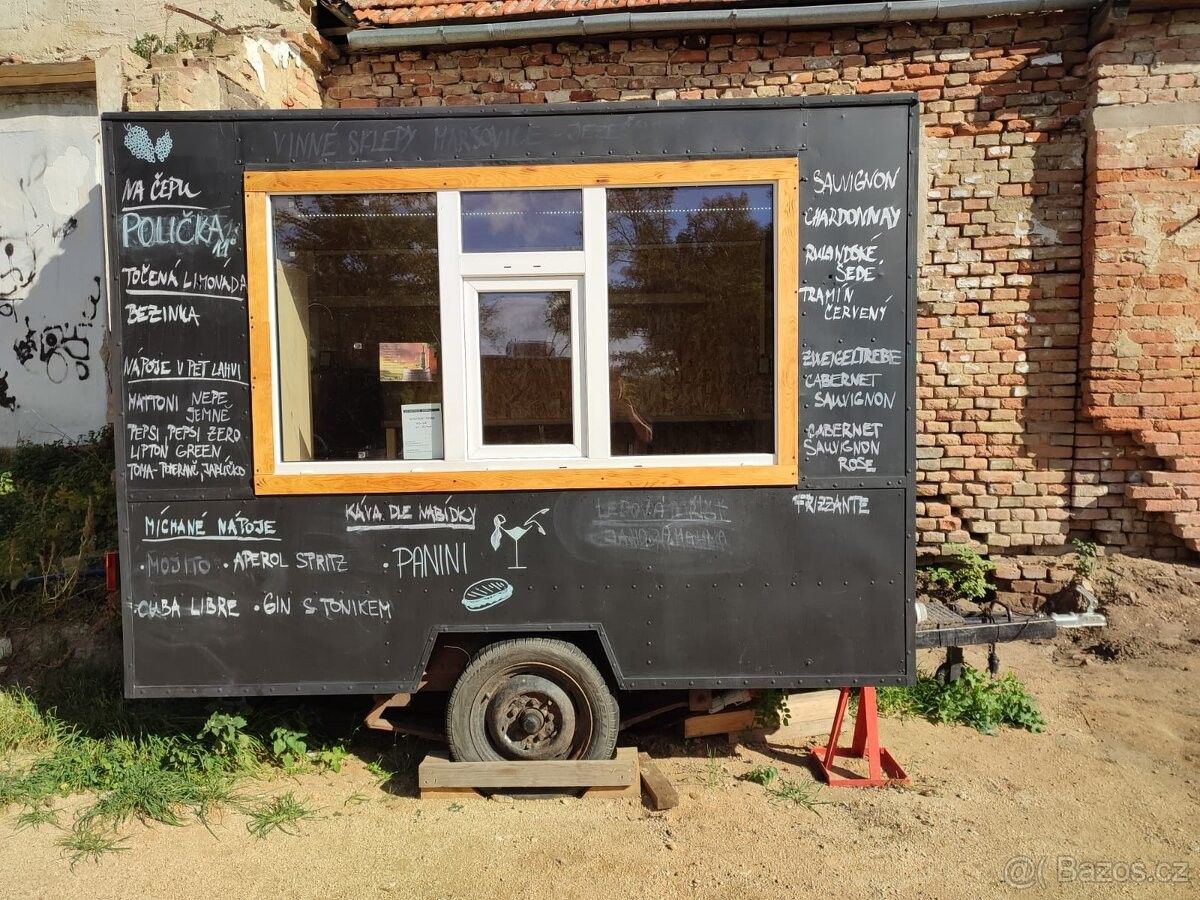 VINNÉ SKLEPY MARŠOVICE
NA ČEPU
POLIČKA
TOČENÁ LIMONÁDA
BEZINKA
NÁPOJE V PET LAHVI
MATTONI NEPE.
JEMNĚ
PEPSI, PEPSI ZERO
LIPTON GREEN
TOMA - POMERANČ, JABLÍČKO
SAUVIGNON
CHARDONNAY
RULANDSKÉ
ŠEDÉ
TRAMÍN
ČERVENÝ
ZWEIGELTREBE
CABERNET
SAUVIGNON
CABERNET
SAUVIGNON
ROSE
FRIZZANTE
MÍCHANÉ NÁPOJE
• MOJITO • APEROL SPRITZ
• CUBA LIBRE • GIN S TONIKEM
KÁVA DLE NABÍDKY
• PANINI
LEDOVÁ DŘÍŤ
JAHODA MALINA
@( Bazos.cz